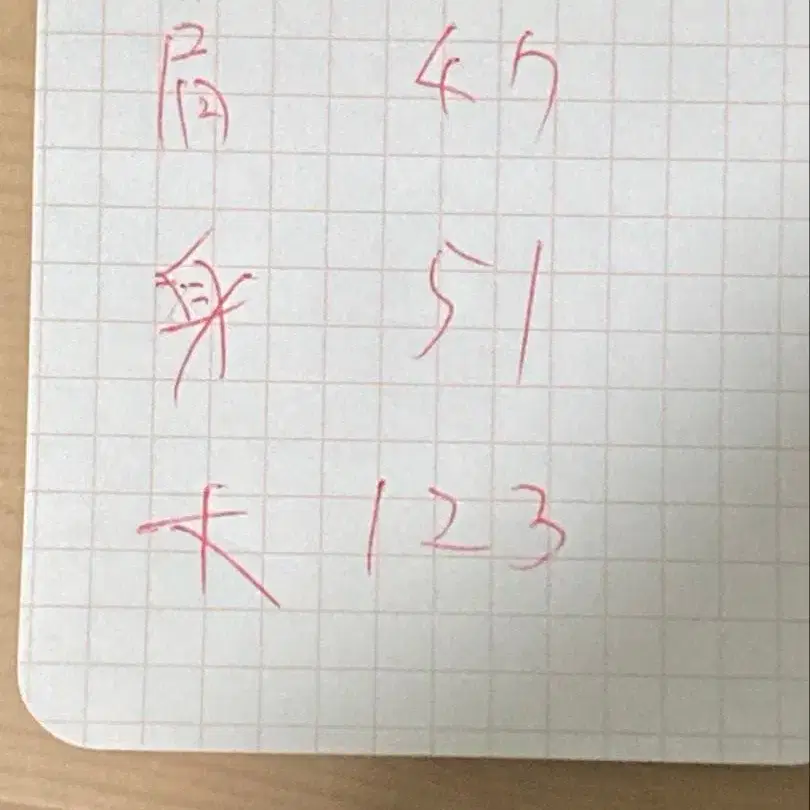 肩 45
身 51
丈 123